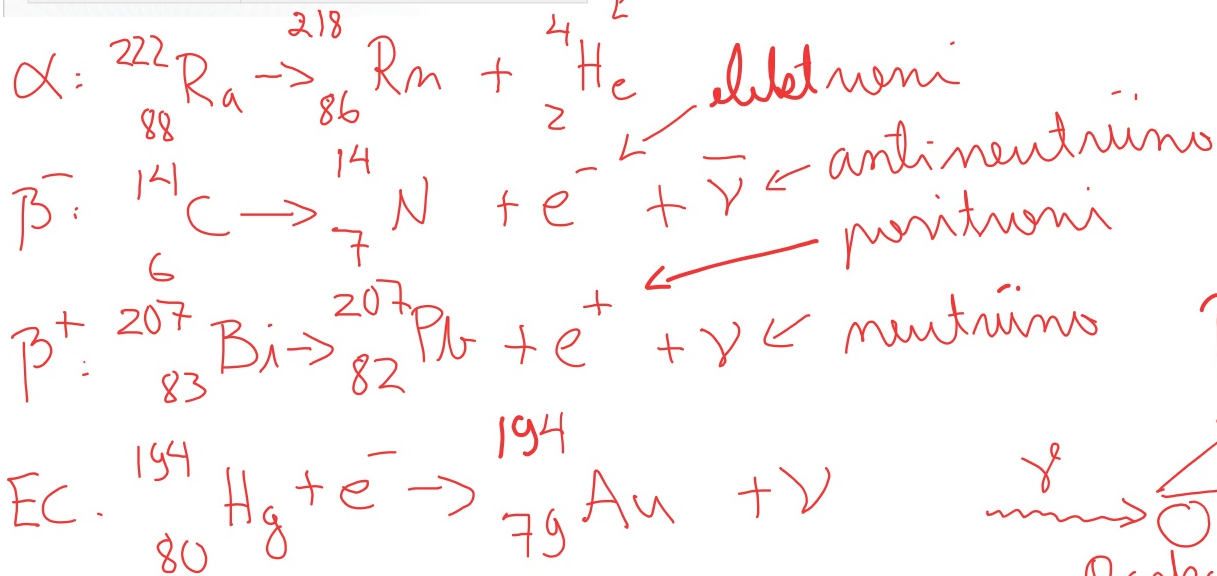 α: ²²²₈₈Ra → ²¹⁸₈₆Rn + ⁴₂He
elektroni
β⁻: ¹⁴₆C → ¹⁴₇N + e⁻ + ν̅ ← antineutriino
positroni
β⁺: ²⁰⁷₈₃Bi → ²⁰⁷₈₂Pb + e⁺ + ν ← neutriino
EC. ¹⁹⁴₈₀Hg + e⁻ → ¹⁹⁴₇₉Au + ν
γ